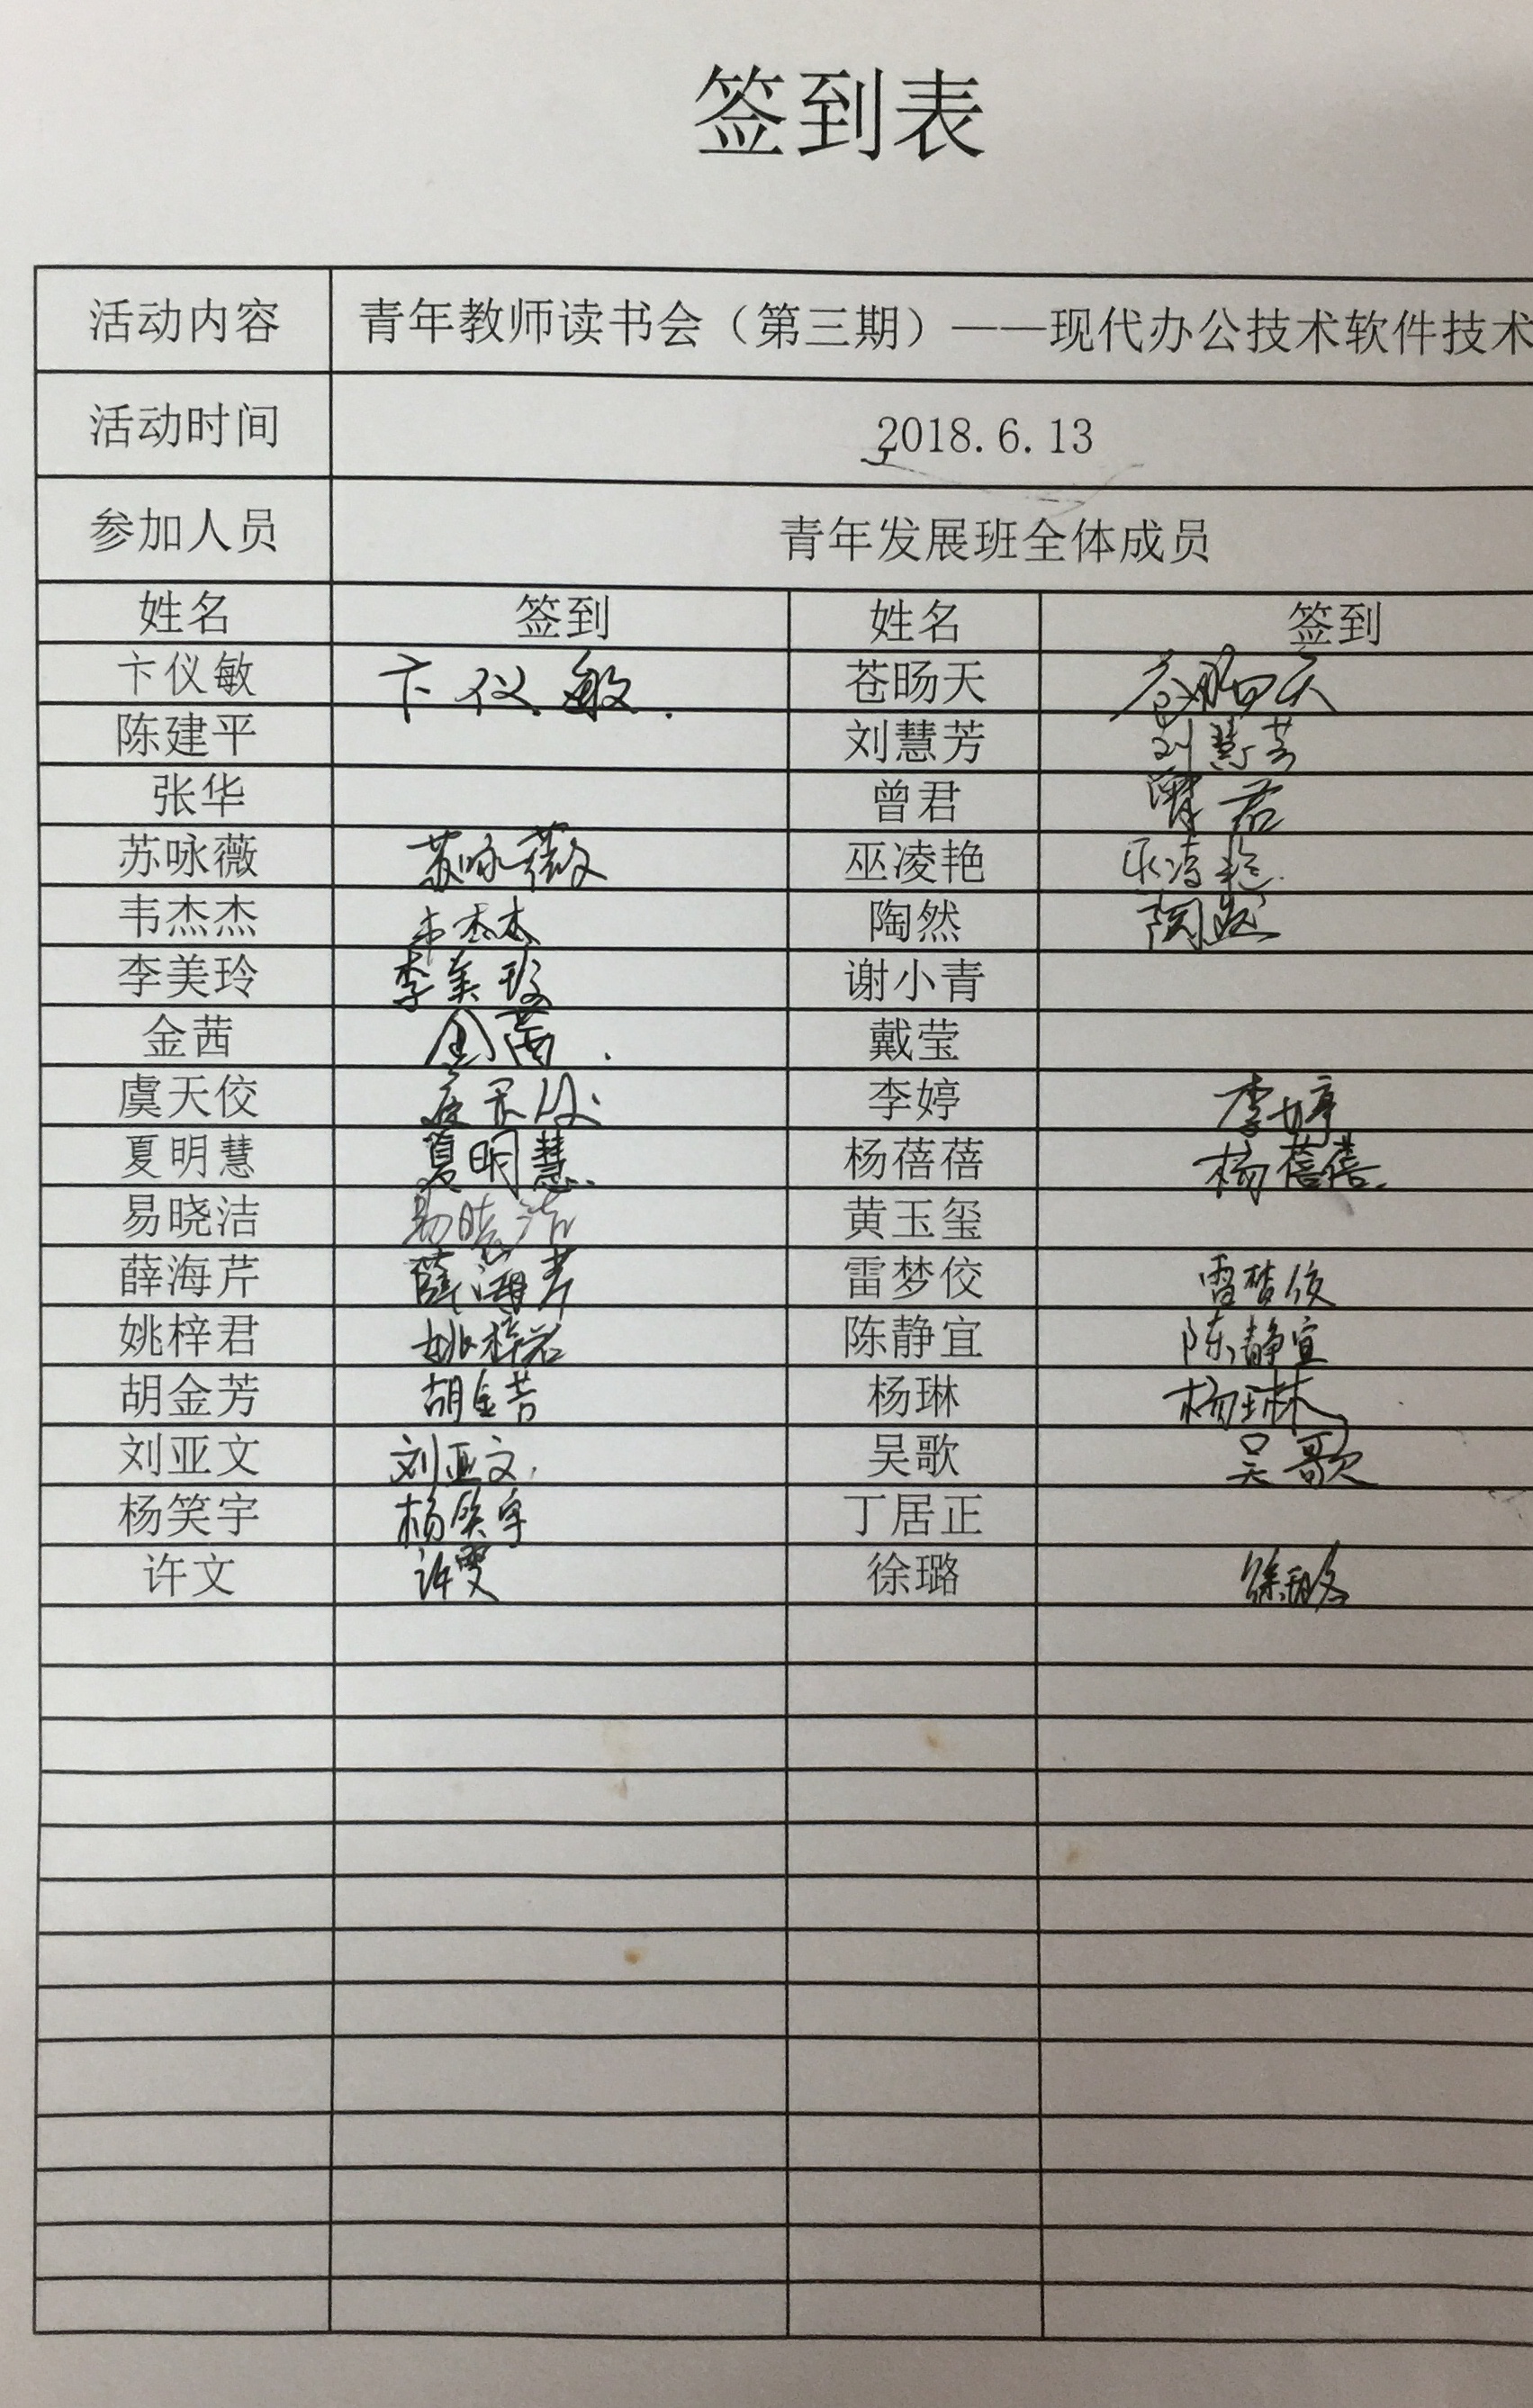 签到表
活动内容 青年教师读书会（第三期）——现代办公技术软件技术
活动时间 2018.6.13
参加人员 青年发展班全体成员
姓名 签到 姓名 签到
卞仪敏 卞仪敏. 苍旸天 苍旸天
陈建平 刘慧芳 刘慧芳
张华 曾君 曾君
苏咏薇 苏咏薇 巫凌艳 巫凌艳
韦杰杰 韦杰杰 陶然 陶然
李美玲 李美玲 谢小青
金茜 金茜. 戴莹
虞天佼 虞天佼 李婷 李婷
夏明慧 夏明慧. 杨蓓蓓 杨蓓蓓.
易晓洁 易晓洁 黄玉玺
薛海芹 薛海芹 雷梦佼 雷梦佼
姚梓君 姚梓君 陈静宜 陈静宜
胡金芳 胡金芳 杨琳 杨琳
刘亚文 刘亚文. 吴歌 吴歌
杨笑宇 杨笑宇 丁居正
许文 许雯 徐璐 徐璐